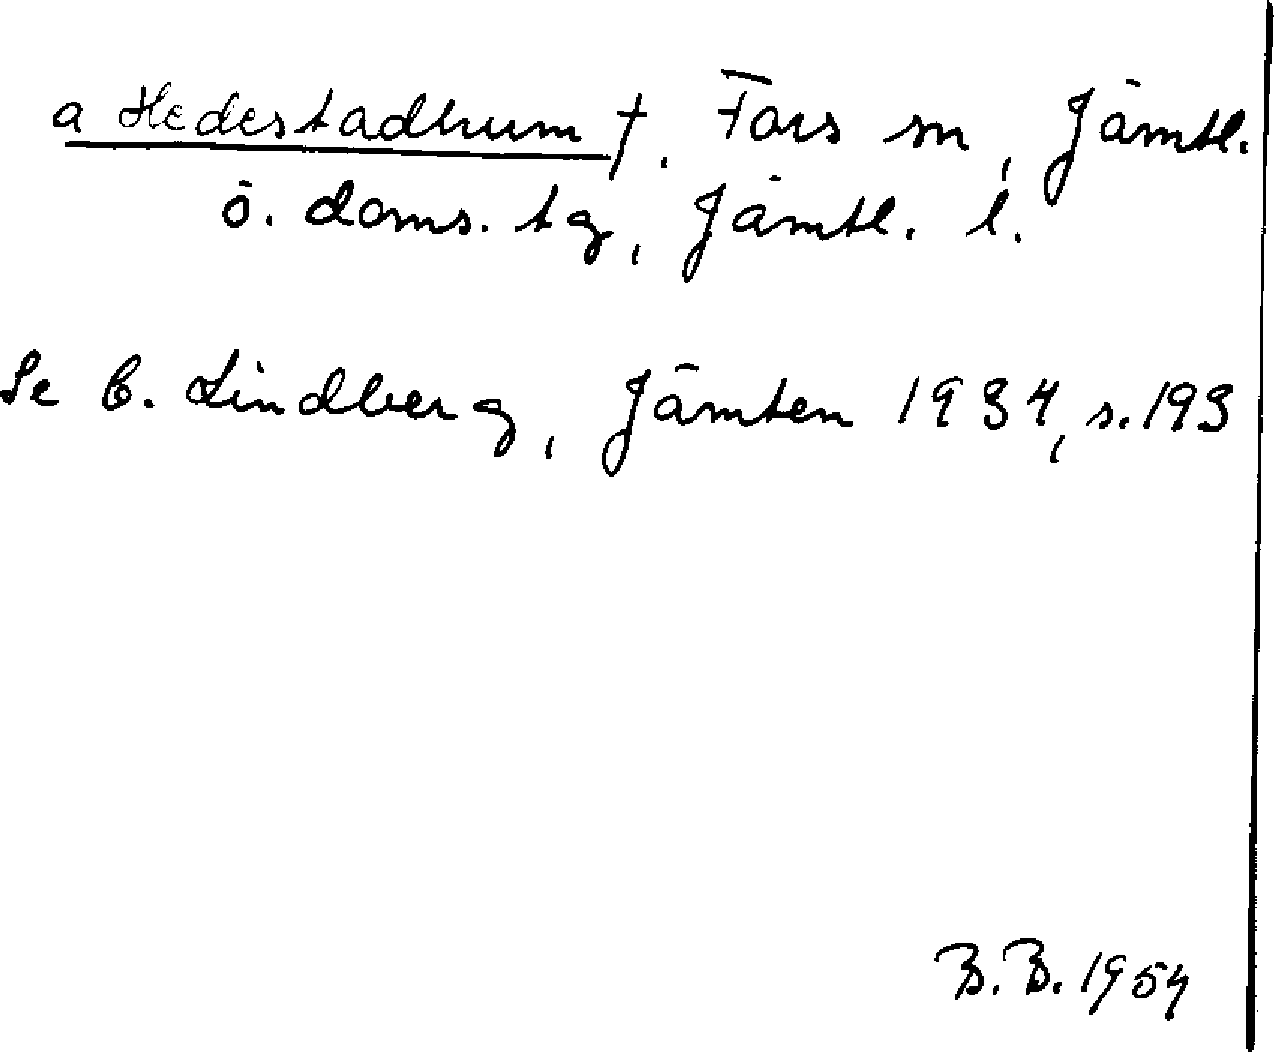 a Hedestadhum †. Fors sn, Jämtl.
ö. doms. tg, Jämtl. l.
Se C. Lindberg, Jämten 1934, s. 193
B.B. 1954